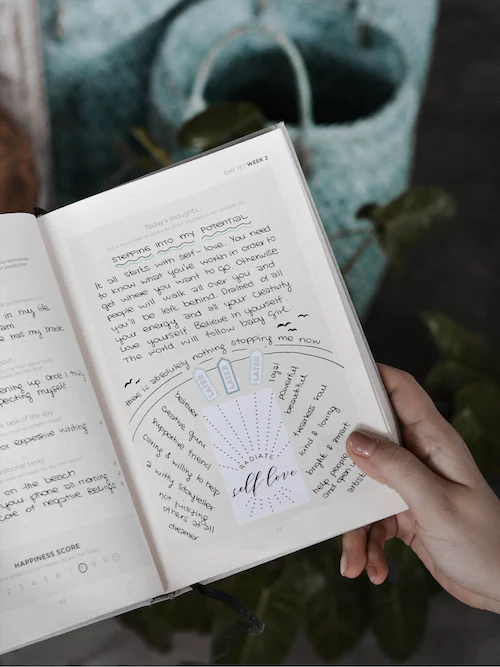 in my life
am
e has my back
ening up once I truly
specting myself
t task of the day
or expressive writing
ational tasks
on the beach
your phone all morning
care of negative feelings
HAPPINESS SCORE
1 2 3 4 5 6 7 8 9 10
DAY 13 / WEEK 2
Today's thoughts...
STEPPING INTO MY POTENTIAL
It all starts with self-love. You need
to know what you're worth in order to
get where you want to go. Otherwise
people will walk all over you and
you'll be left behind. Drained of all
your energy and all your creativity
Love yourself. Believe in yourself.
The world will follow baby girl
there is absolutely nothing stopping me now
LATER
LATER
LATER
believer
creative guru
supportive friend
caring & willing to help
a witty storyteller
not pissing
others at all
dreamer
RADIATE
self love
loyal
powerful
beautiful
fearless soul
kind & loving
bright & smart
help people
and open